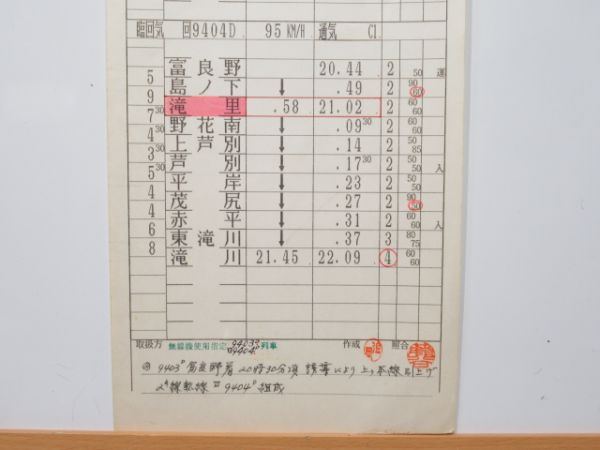 臨回気 回9404D 95 KM/H 通気 C1
富良野 20.44 2 50 運
5
島ノ下 ↓ .49 2 90 60
9
滝里 .58 21.02 2 60 60
7 30
野花南 ↓ .09 30 2 60 60
4 30
上芦別 ↓ .14 2 50 85
3 30
芦別 ↓ .17 30 2 50 50 入
5 30
平岸 ↓ .23 2 50 50
4
茂尻 ↓ .27 2 90 50
4
赤平 ↓ .31 2 60 60 入
6
東滝川 ↓ .37 3 80 75
8
滝川 21.45 22.09 4 60 60
取扱方 無線機使用指定 9403D 9404D 列車 作成 照合
9403D 富良野着 20時30分頃 誘導により上り本線引上げ
2 9404D 組成